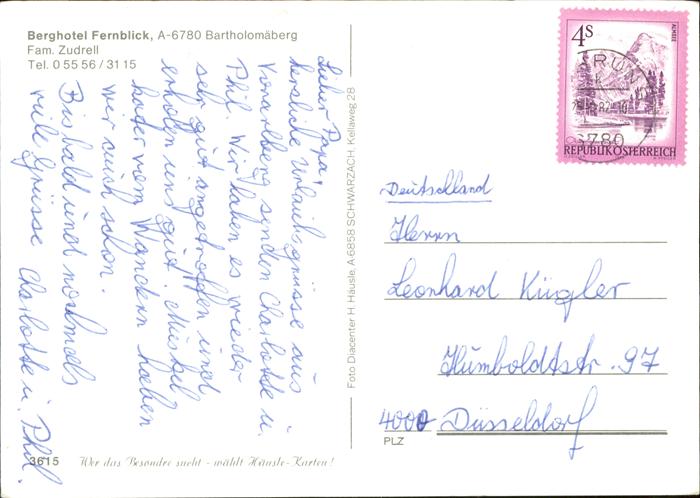 Berghotel Fernblick, A-6780 Bartholomäberg
Fam. Zudrell
Tel. 0 55 56 / 31 15
Lieber Papa,
herzliche Urlaubsgrüsse aus
Vorarlberg senden Charlotte u.
Phil. Wir haben es wieder
sehr gut angetroffen und
erholen uns gut. Muskel
kater vom Wandern haben
wir auch schon.
Bis bald und nochmals
viele Grüsse Charlotte u. Phil.
3615 Wer das Besondre sucht - wählt Häusle-Karten!
Foto Diacenter H. Häusle, A-6858 SCHWARZACH, Kellaweg 28
4S
ALMSEE
RUN
82-10
6780
REPUBLIK ÖSTERREICH
Deutschland
Herrn
Leonhard Kügler
Humboldtstr. 97
4000 Düsseldorf
PLZ